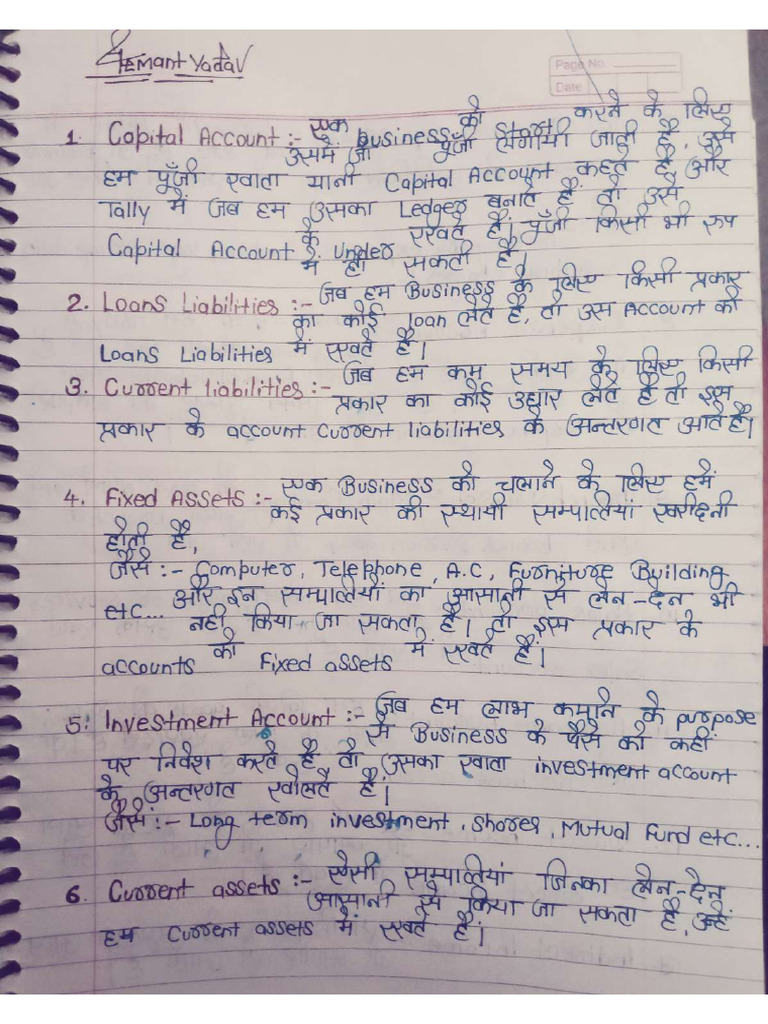 Hemant Yadav
Page No.
Date
1. Capital Account :- एक business को Start करने के लिए
उसमें जो पूँजी लगायी जाती है, उसे
हम पूँजी खाता यानी Capital Account कहते है, और
Tally में जब हम उसका Ledger बनाते है, तो उसे
Capital Account के Under रखते है। पूँजी किसी भी रूप
में हो सकती है।
2. Loans Liabilities :- जब हम Business के लिए किसी प्रकार
का कोई loan लेते है, तो उस Account को
Loans Liabilities में रखते है।
3. Current liabilities :- जब हम कम समय के लिए किसी
प्रकार का कोई उद्यार लेते है तो इस
प्रकार के account current liabilities के अन्तरगत आते है।
4. Fixed Assets :- एक Business को चलाने के लिए हमें
कई प्रकार की स्थायी सम्पात्तियां खरीदनी
होती है,
जैसे :- Computer, Telephone, A.C, Furniture Building
etc... और इन सम्पात्तियों का आसानी से लेन-देन भी
नही किया जा सकता है। तो इस प्रकार के
accounts को Fixed assets में रखते है।
5. Investment Account :- जब हम लाभ कमाने के purpose
से Business के पैसे को कहीं
पर निवेश करते है, तो उसका खाता investment account
के अन्तरगत खोलते है।
जैसे :- Long term investment, Shares, Mutual Fund etc...
6. Current assets :- ऐसी सम्पात्तियां जिनका लेन-देन
आसानी से किया जा सकता है, उन्हें
हम Current assets में रखते है।